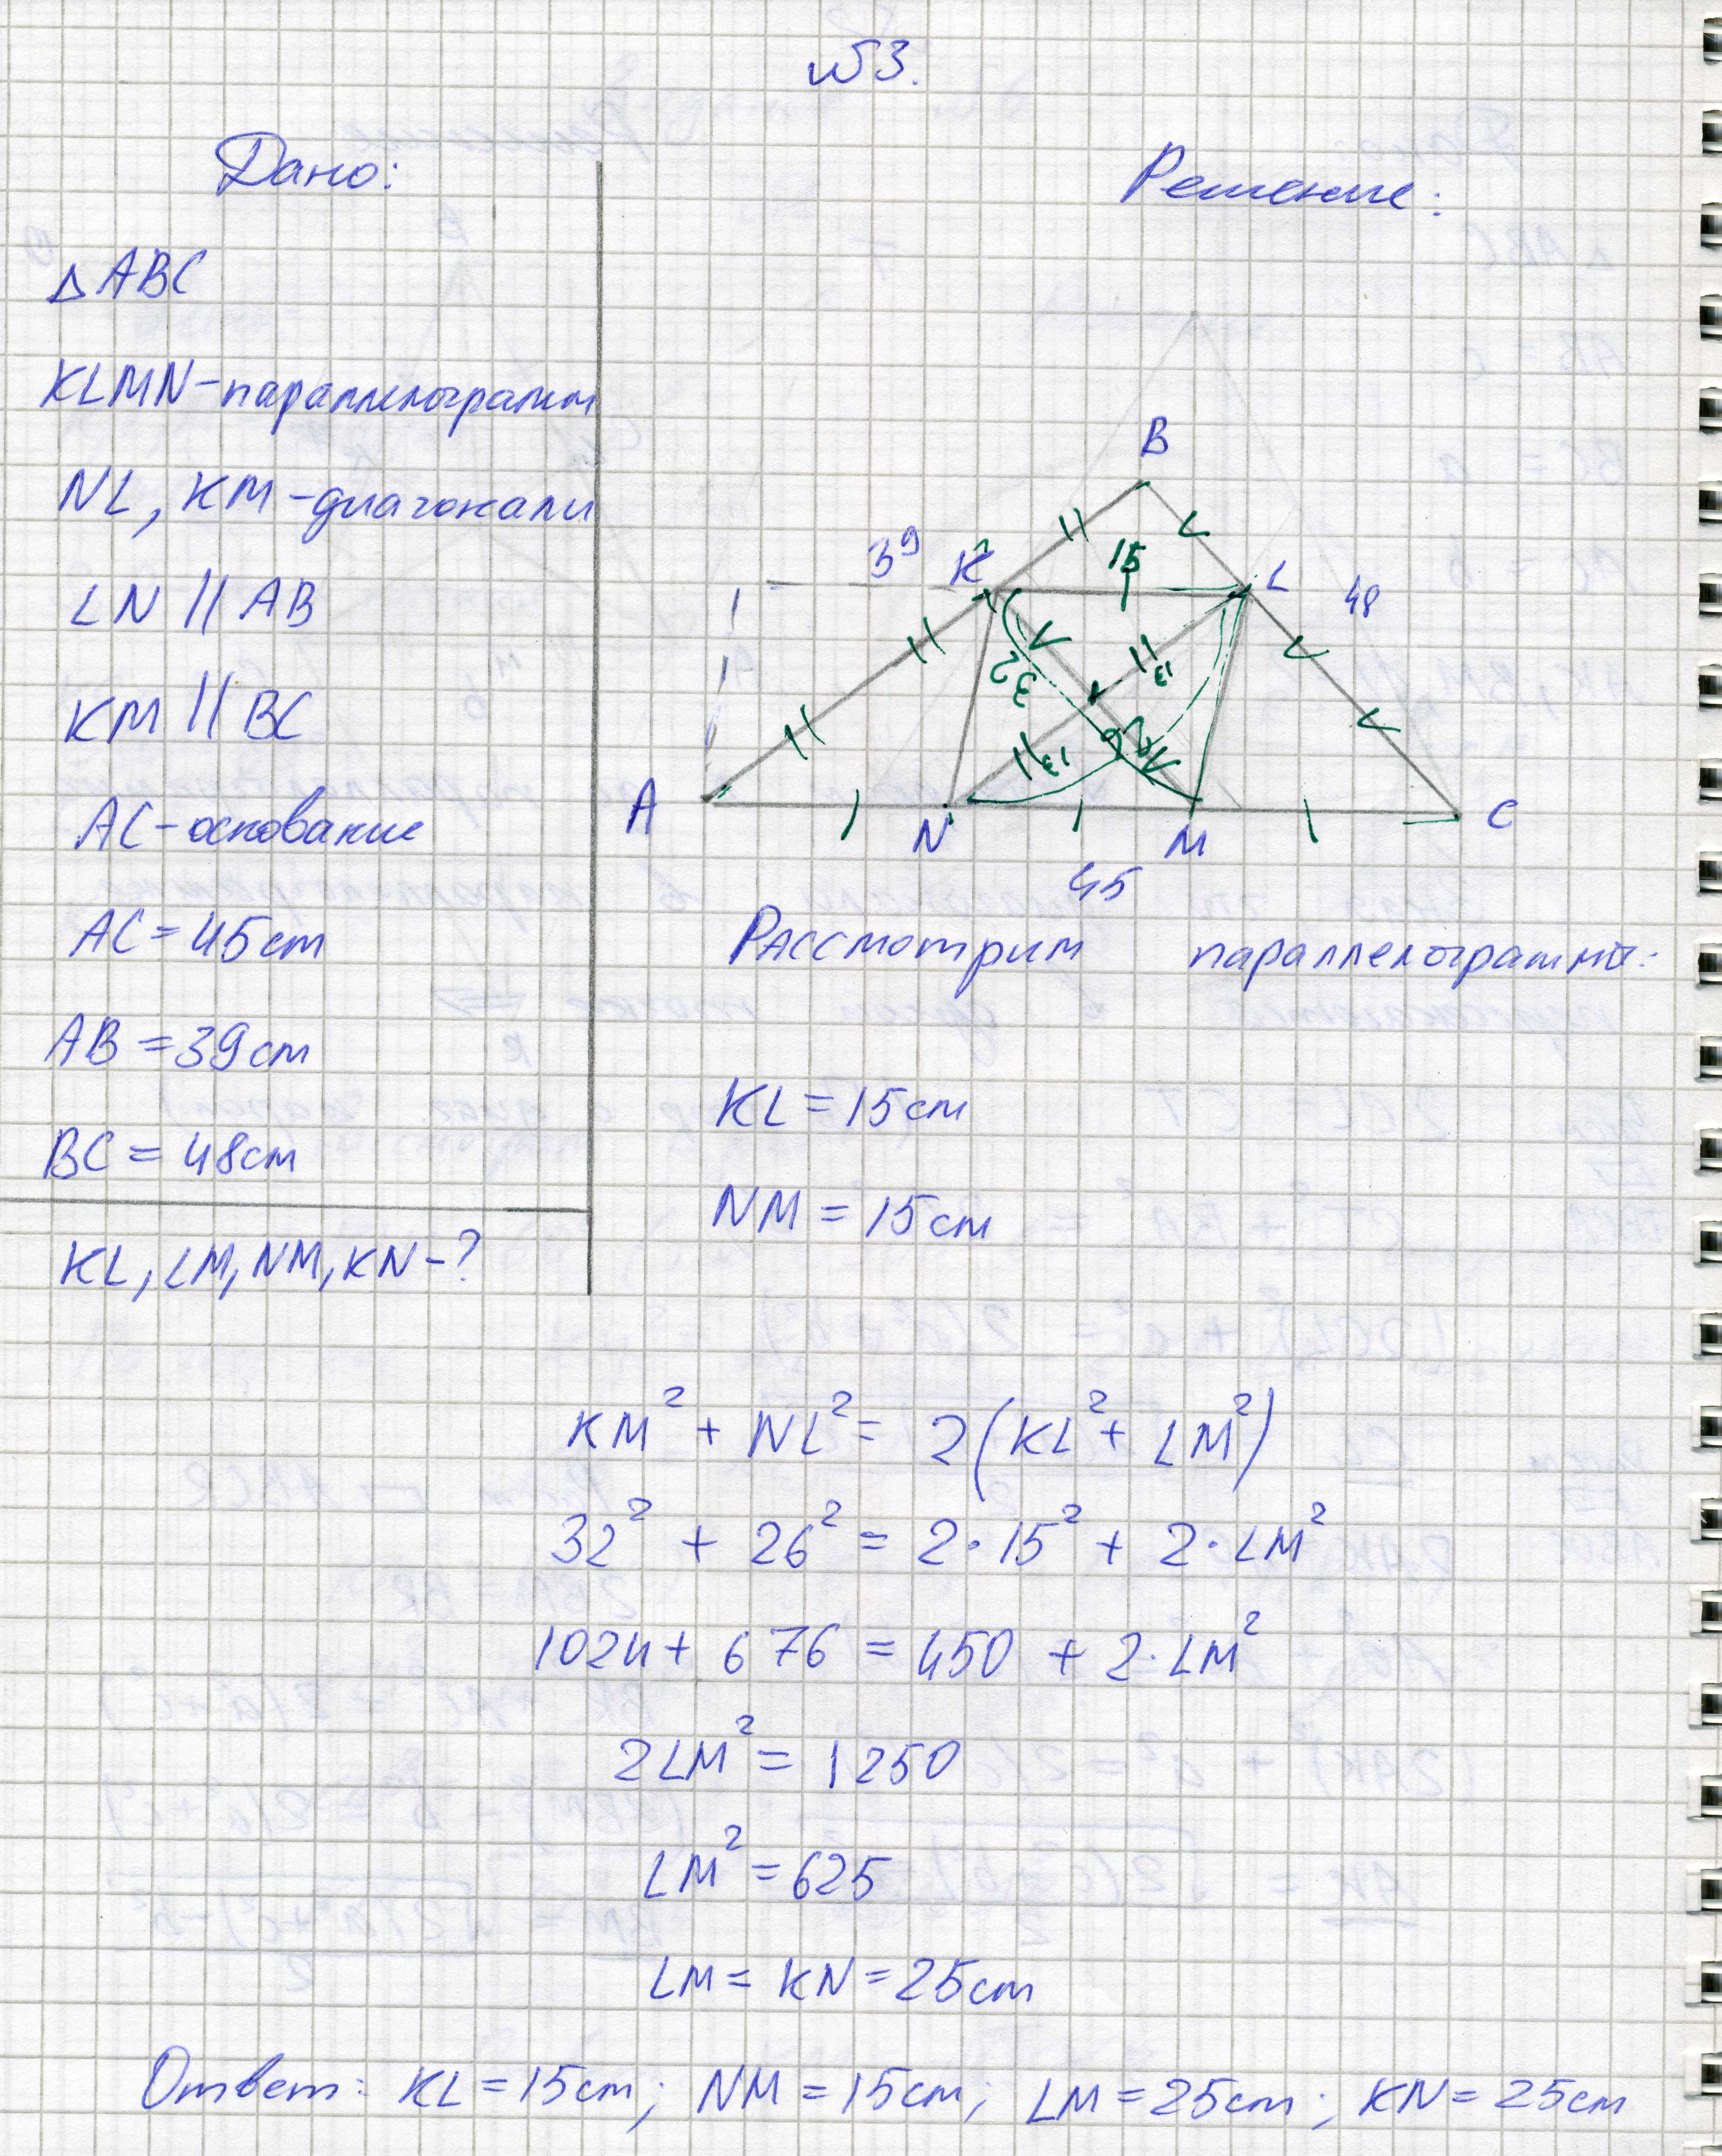 №3.
Дано:
Решение:
△ABC
KLMN-параллелограмм
NL, KM-диагонали
LN || AB
KM || BC
AC-основание
AC=45см
AB=39см
BC=48см
KL, LM, NM, KN-?
B
39
K
15
L
48
32
13
26
13
A
N
M
C
45
Рассмотрим параллелограмм:
KL=15см
NM=15см
KM² + NL² = 2(KL² + LM²)
32² + 26² = 2·15² + 2·LM²
1024 + 676 = 450 + 2·LM²
2LM² = 1250
LM² = 625
LM = KN = 25см
Ответ: KL=15см; NM=15см; LM=25см; KN=25см